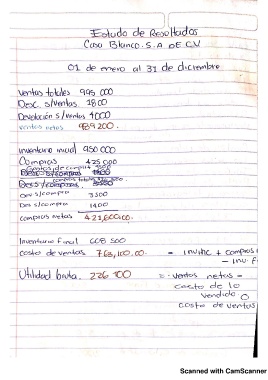 Estado de Resultados
Casa Blanca S.A DE C.V
01 de enero al 31 de diciembre
Ventas totales 995 000
Desc. s/Ventas 1800
Devolución s/ventas 4000
ventas netas 989 200.
inventario inicial 950 000
Compras 425 000
Gastos de compra
compras totales
Dev s/compra 3500
Des s/compra 1400
compras netas
Inventario Final 608 500
costo de ventas 763,100.00. = inv.inic + compras
- inv. F
Utilidad bruta. 226 100 = ventas netas -
costo de lo
vendido o
costo de ventas
Scanned with CamScanner